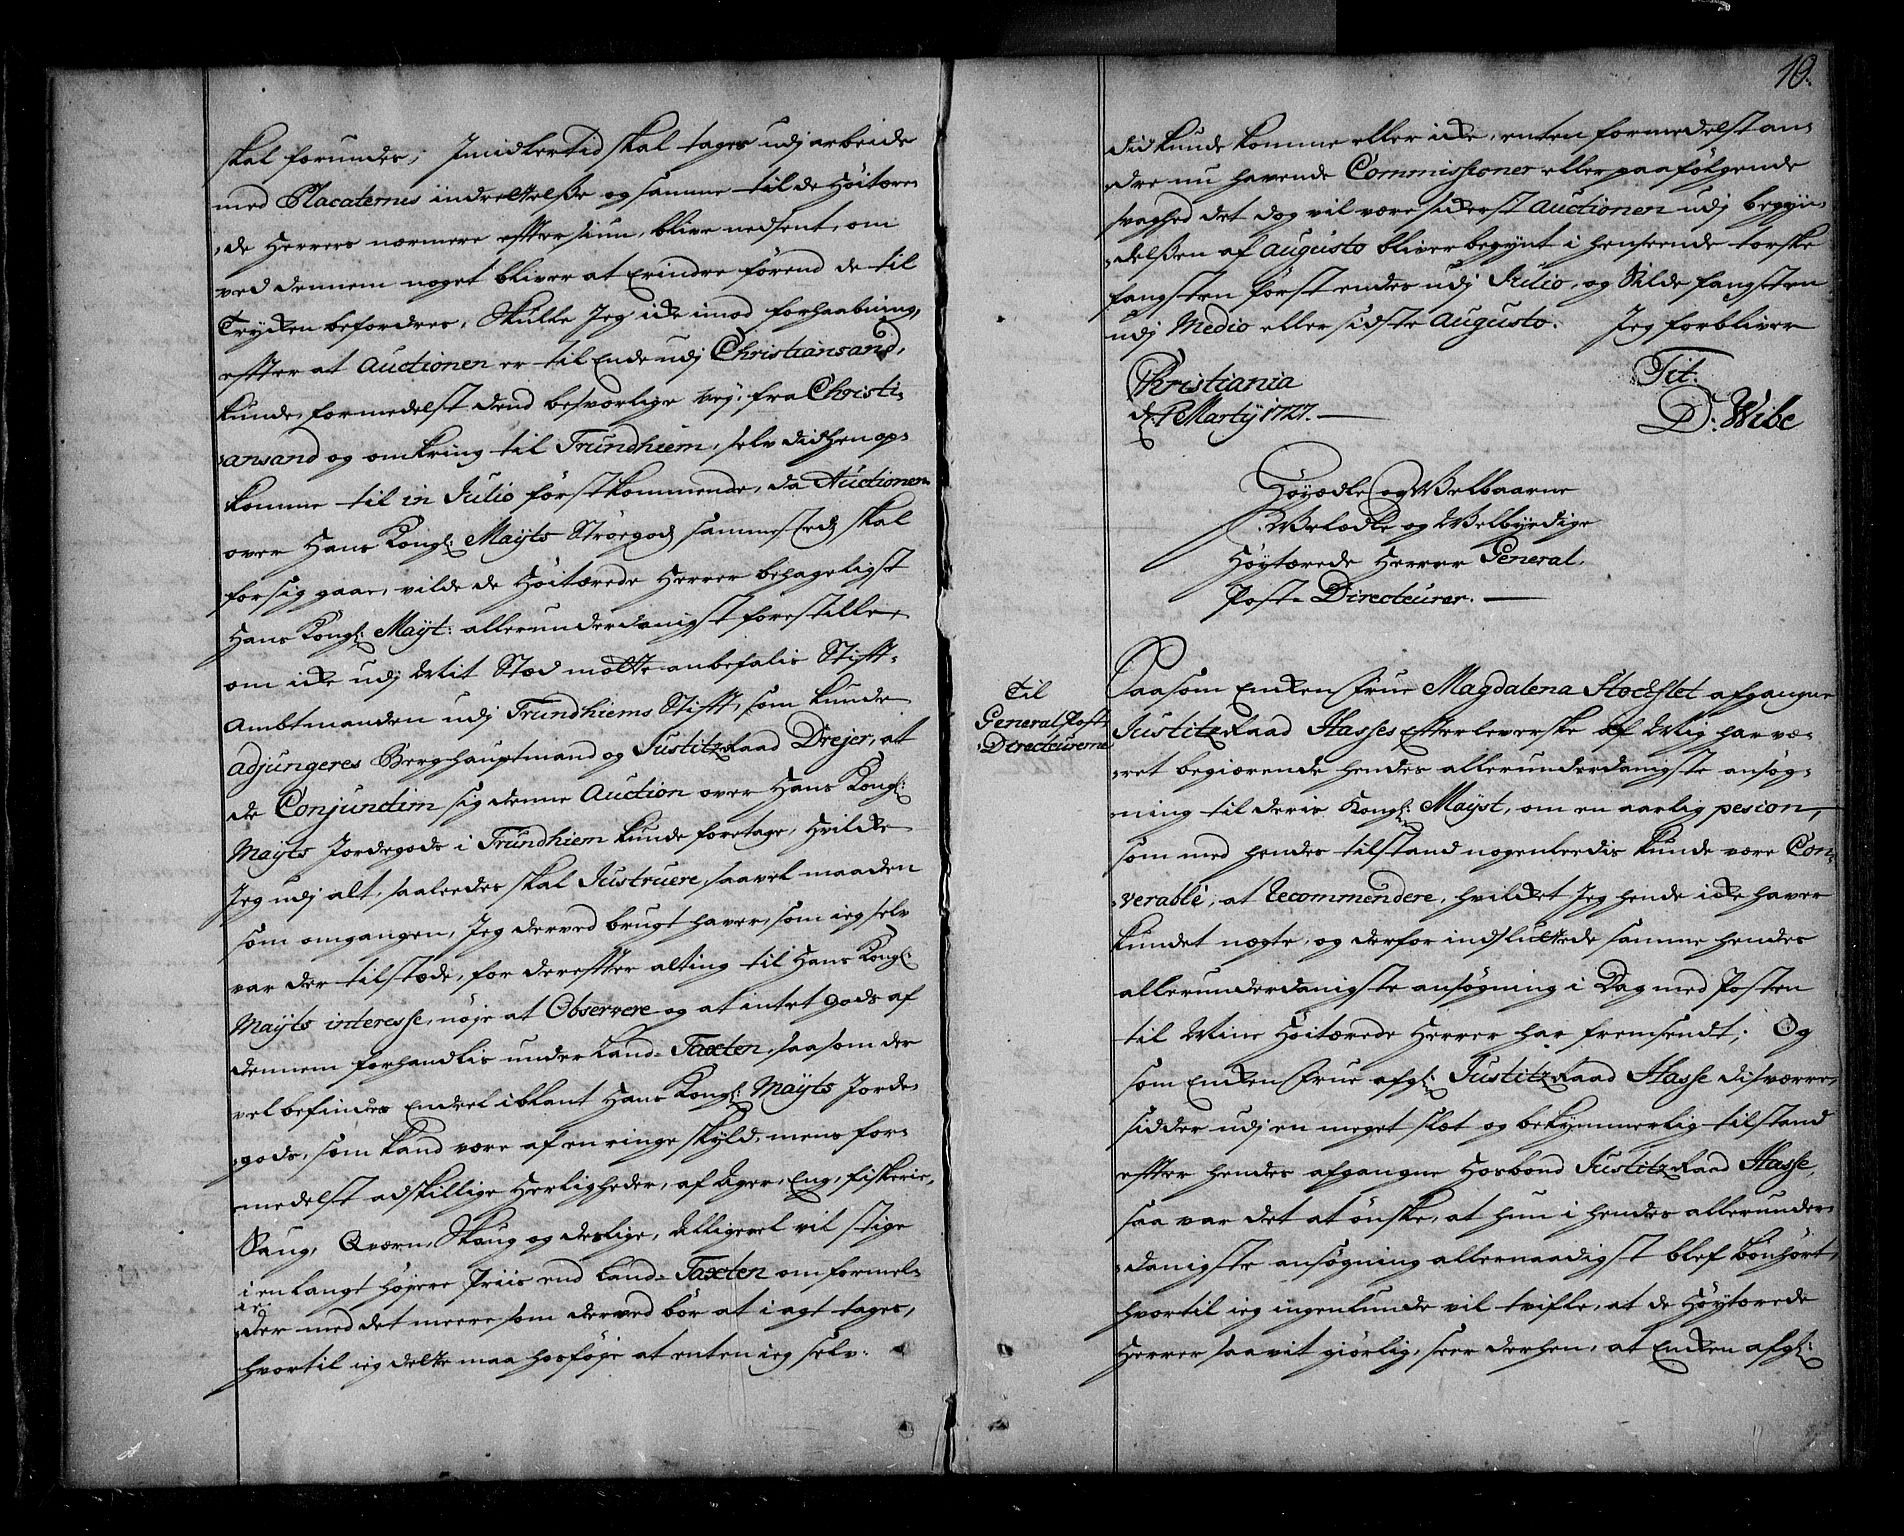 skal forundes, Imidlertid skal tages udj arbeide
med Placaternes indrettelße og samme til de Höitære-
de Herrers nærmere efftersiun, blive nedsent, om
ved dennem noget bliver at Erindre förend de til
Trycken befordres, Skulle Jeg icke imod forhaabning,
effter at Auctionen er til Ende udj Christiansand,
kunde, formedelst dend besværlige vej, fra Christi-
ansand og omkring til Trundhiem, selv didhen op-
komme til in Julio först kommende, da Auctionen
over Hans Kongl: Mayts Ströegods sammesteds skal
forsig gaae, vilde de Höitærede Herrer behageligst
Hans Kongl: Mayt: allerunderdanigst forestille,
om icke udj Mit Sted motte anbefalis Stifft-
Ambtmanden udj Trundhiems Stifft, som kunde
adjungeres Berghauptmand og Justitz Raad Drejer, at
de Conjunctim sig denne Auction over Hans Kongl:
Mayts Jordegods i Trundhiem kunde foretage, Hvilcke
Jeg udj alt, saaleedes skal Instruere, saavel maaden
som omgangen, Jeg derved brugt haver, som ieg selv
var der tilstæde, for dereffter alting til Hans Kongl:
Mayts interesse, nöje at Observere og at intet gods af
dennem forhandlis under Land-Taxten, saasom der
vel befindes Endeel iblant Hans Kongl: Mayts Jorde-
gods, som kand være af en ringe skyld, mens for-
medelst adskillige Herligheder, af Ager, Eng, fiskerie,
Saug, Qværn, Skoug og deslige, alligevel vil stige
i en langt höjere Priis end Land-Taxten om formel-
der med det meere som derved bör at i agt tages,
hvortil ieg dette maa hosföje at enten ieg selv
10.
did kunde komme eller icke, enten formedelst an-
dre nu havende Commissioner eller paafölgende
svaghed det dog vil være sikkerst Auctionen udj begyn-
delßen af Augusto bliver begynt i henseende torske
fangsten först endes udj Julio, og Silde fangsten
udj Medio eller sidste Augusto. Jeg forbliver
Christiania
d: Martij 1727.
Tit:
D: Wibe
Höyædle og Welbaarne
Velædle og Welbyrdige
Höytærede Herrer General.
Post-Directeurer.
Til
General Post
Directeurerne
Saasom Encken Frue Magdalena Stochflet afgangne
Justitz Raad Hasses Effterleverske af Mig har væ-
ret begiærende hendes allerunderdanigste ansög-
ning til deris Kongl: Mayst, om en aarlig pesion,
som med hendes tilstand nogenleedis kunde være Con-
verable, at Recommendere, hvilcket Jeg hende icke haver
kundet negte, og derfor indsluttede samme hendes
allerunderdanigste ansögning i Dag med Posten
til Mine Höitærede Herrer har fremsendt; Og
som Encken Frue afgl: Justitz Raad Hasse disværre,
sidder udj en meget slet og bekymmerlig tilstand
effter hendes afgangne Hosbond Justitz Raad Hasse,
saa var det at önske, at hun i hendes allerunder-
danigste ansögning allernaadigst blef bönhört,
hvortil ieg ingenlunde vil tvifle, at de Höytærede
Herrer saa vit giörlig, seer derhen, at Encken afgl: